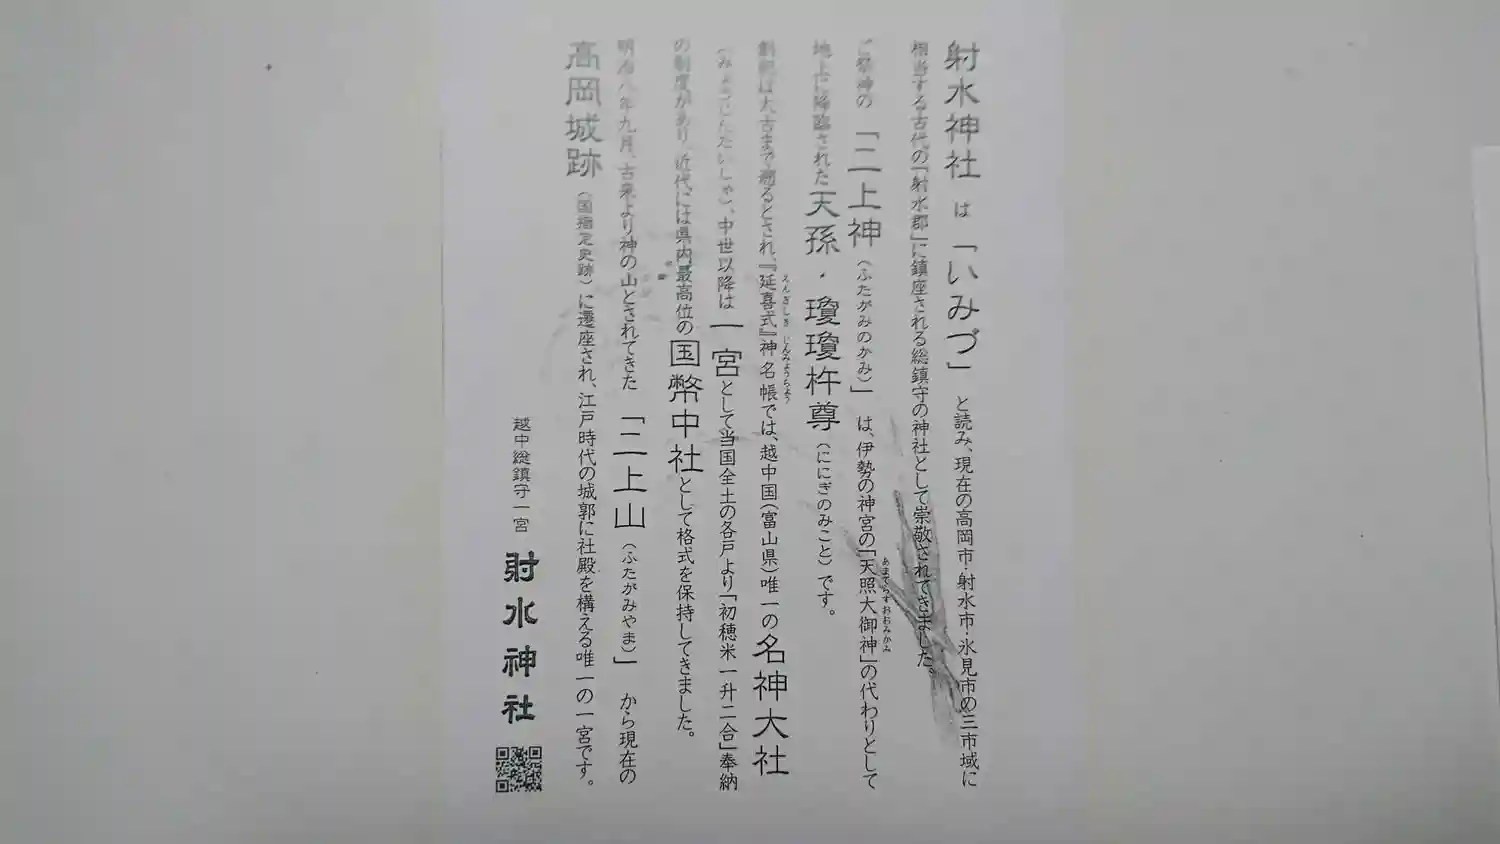 射水神社 は 「いみづ」 と読み、現在の高岡市・射水市・氷見市の三市域に
相当する古代の「射水郡」に鎮座される総鎮守の神社として崇敬されてきました。
ご祭神の 「二上神（ふたがみのかみ）」 は、伊勢の神宮の「天照大御神」の代わりとして
あまてらすおおみかみ
地上に降臨された 天孫・瓊瓊杵尊（ににぎのみこと）です。
創祀は太古まで遡るとされ、『延喜式』神名帳では、越中国（富山県）唯一の 名神大社
えんぎしき じんみょうちょう
（みょうじんたいしゃ）、中世以降は 一宮として当国全土の各戸より「初穂米一升二合」奉納
の制度があり、近代には県内最高位の国幣中社として格式を保持してきました。
明治八年九月、古来より神の山とされてきた 「二上山（ふたがみやま）」 から現在の
高岡城跡（国指定史跡）に遷座され、江戸時代の城郭に社殿を構える唯一の一宮です。
越中総鎮守一宮 射水神社